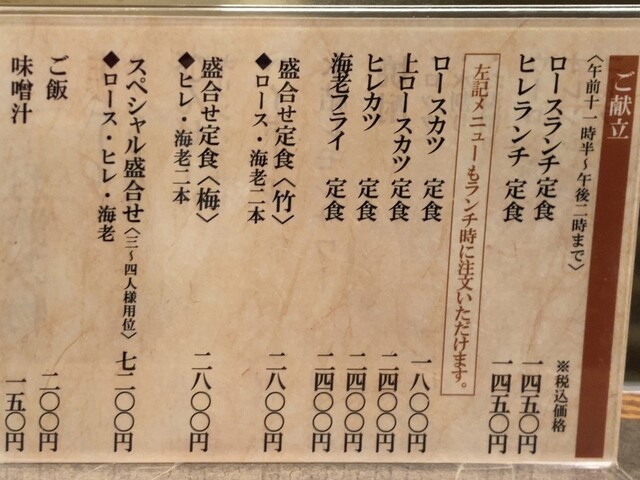 ご献立
〈午前十一時半～午後二時まで〉
※税込価格
ロースランチ 定食 一四五〇円
ヒレランチ 定食 一四五〇円
左記メニューもランチ時に注文いただけます。
ロースカツ 定食 一八〇〇円
上ロースカツ 定食 二四〇〇円
ヒレカツ 定食 二四〇〇円
海老フライ 定食 二四〇〇円
盛合せ定食〈竹〉 二八〇〇円
◆ロース・海老二本
盛合せ定食〈梅〉 二八〇〇円
◆ヒレ・海老二本
スペシャル盛合せ〈三～四人様用位〉 七二〇〇円
◆ロース・ヒレ・海老
ご飯 二〇〇円
味噌汁 一五〇円